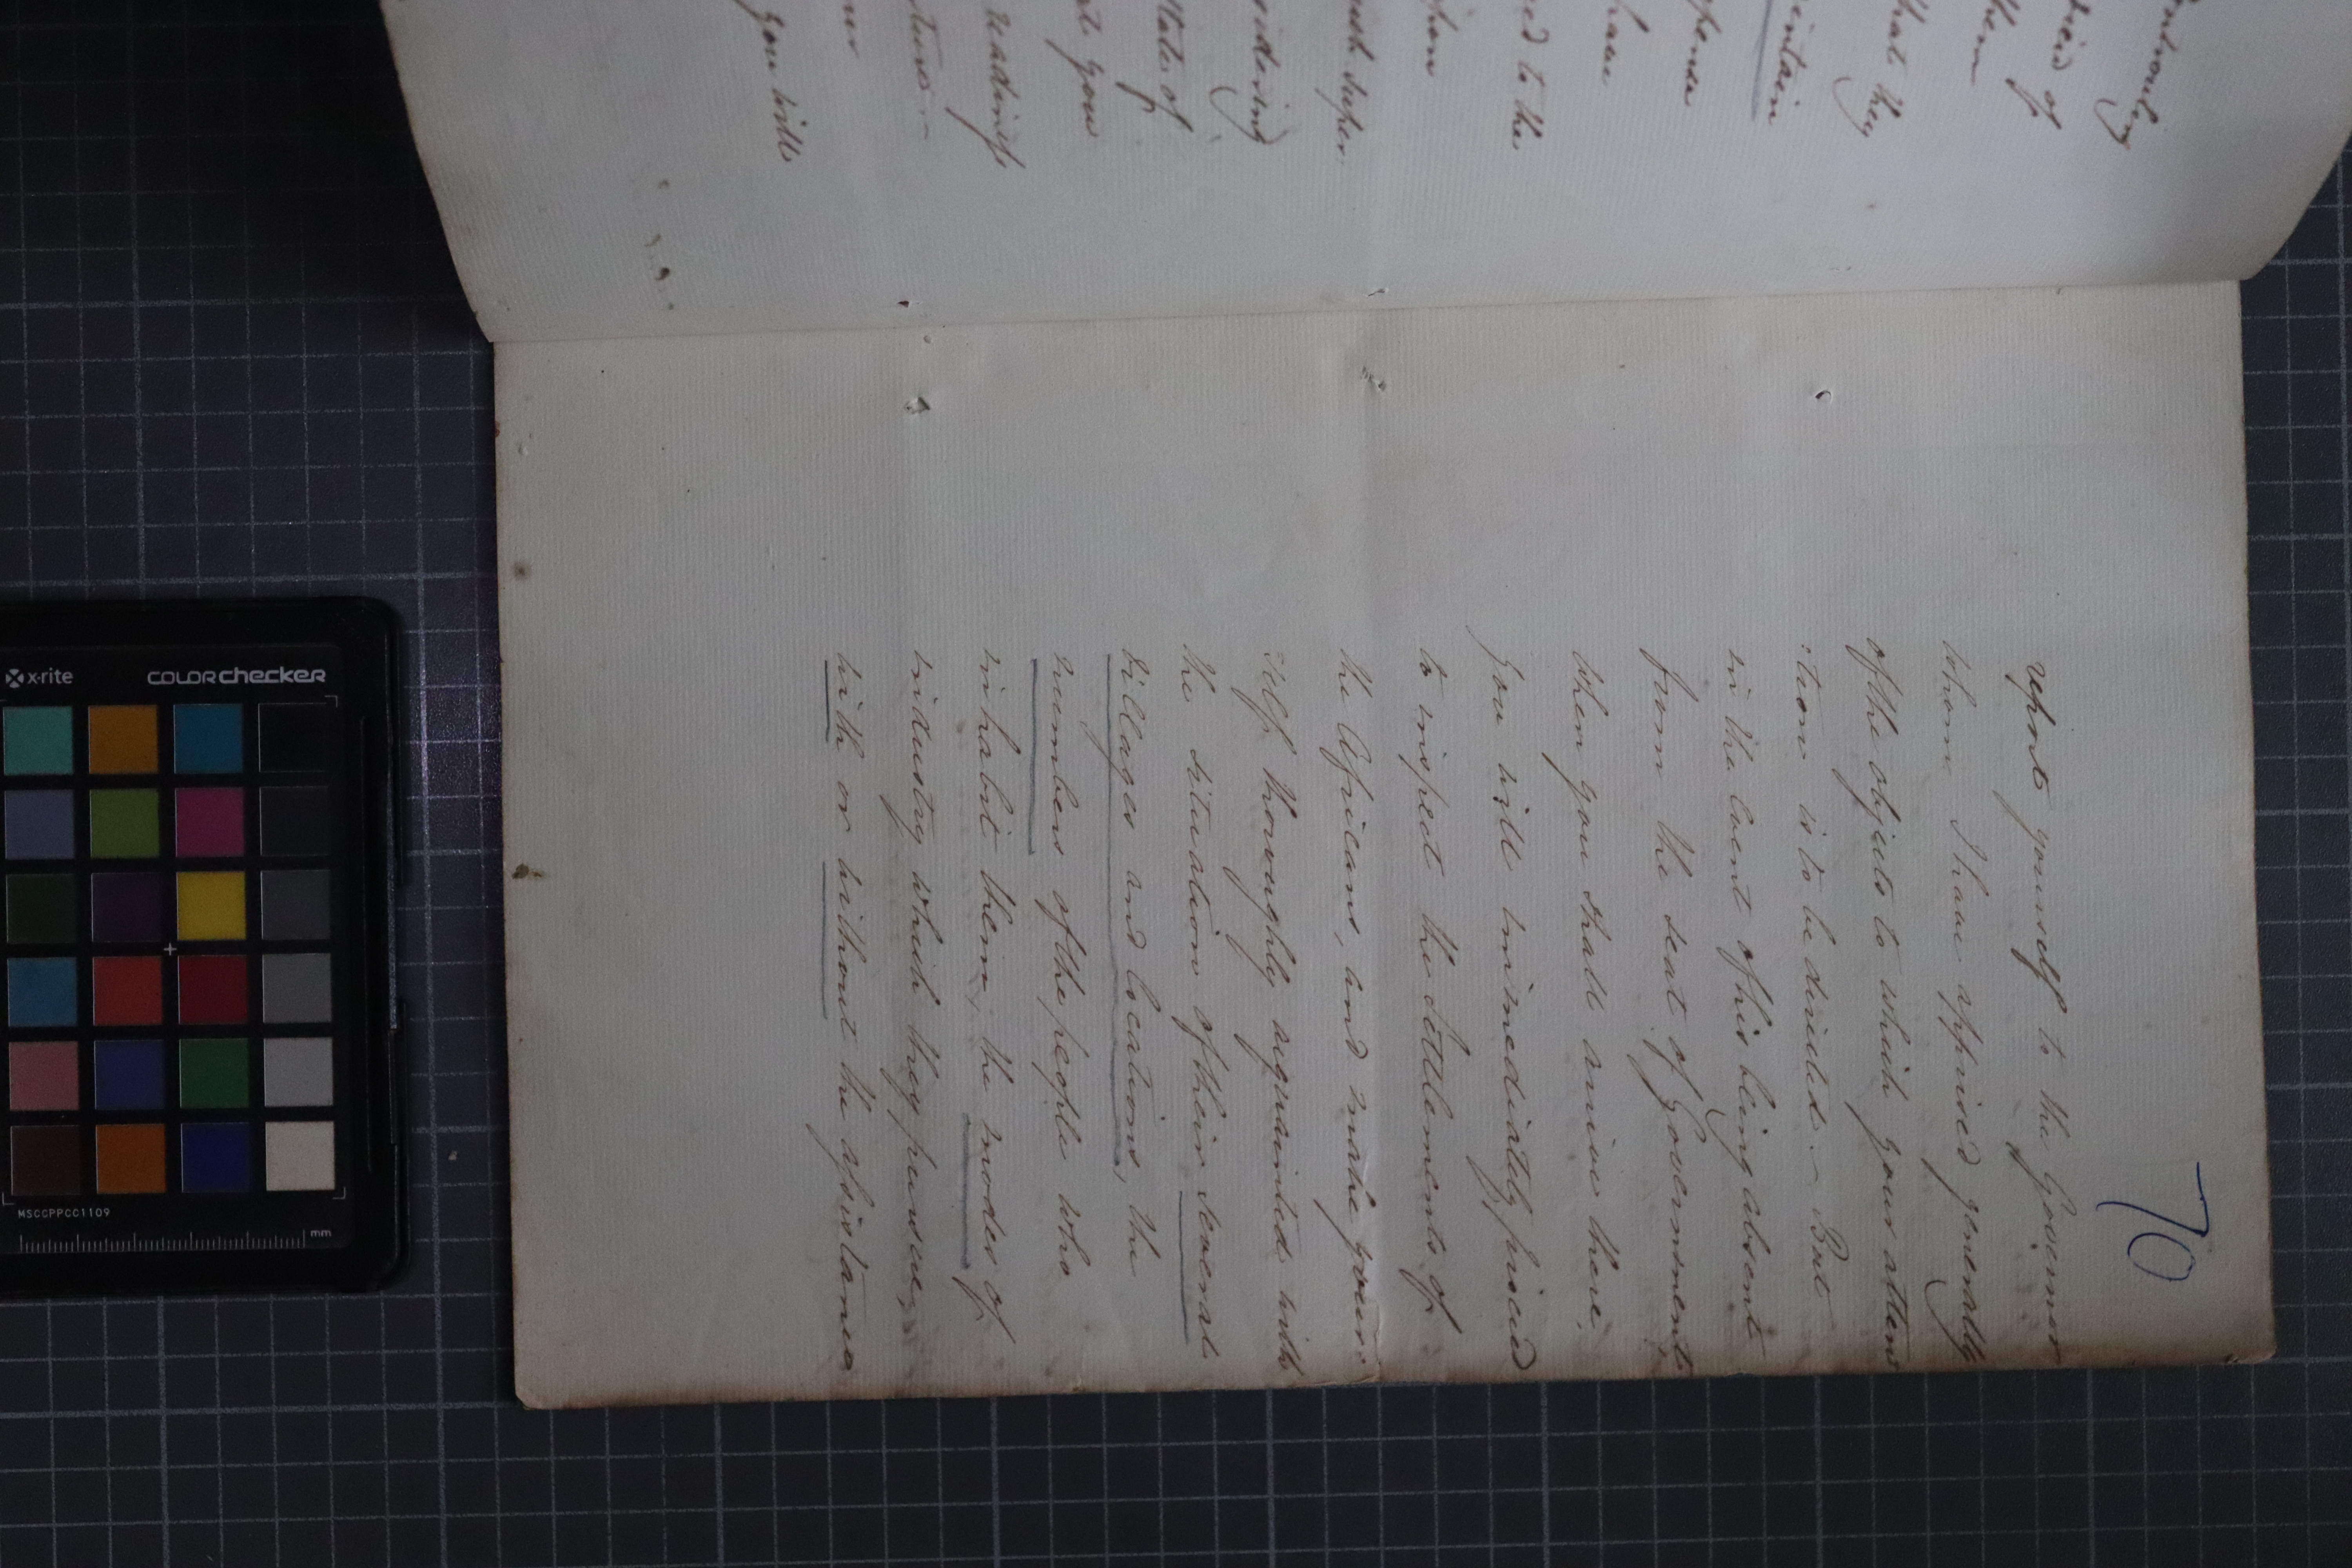 70
report yourself to the Governor
whom I have apprised generally
of the objects to which your atten
:tion is to be directed. – But
in the event of his being absent
from the seat of Government,
when you shall arrive there,
you will immediately proceed
to inspect the Settlements of
the Africans, and make your:
:self thoroughly acquainted with
the situation of their several
villages and locations, the
numbers of the people who
inhabit them, the modes of
industry which they pursue,
with or without the assistance
of
them
that they
have
ed to the
sidering
State of
you
readiness
you will
x-rite
COLORchecker
MSCCPPCC1109
mm